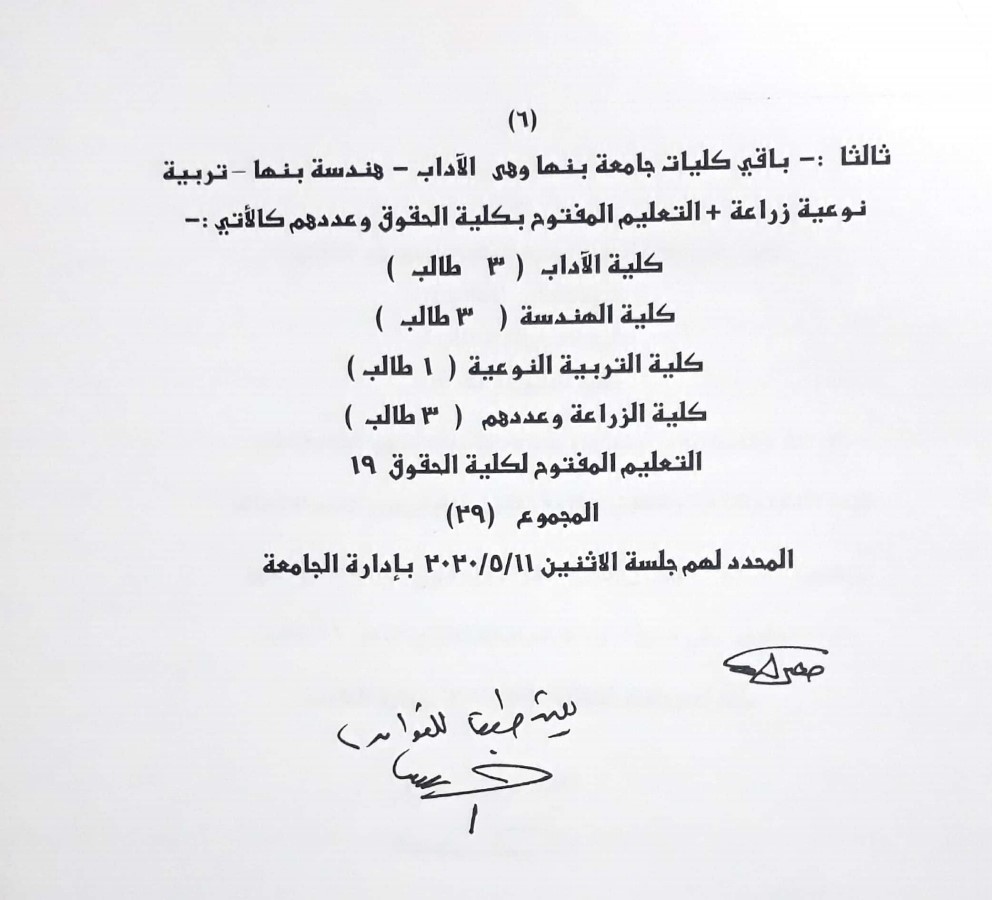 (٦)
ثالثا :- باقي كليات جامعة بنها وهى الآداب - هندسة بنها - تربية
نوعية زراعة + التعليم المفتوح بكلية الحقوق وعددهم كالأتي :-
كلية الآداب ( ٣ طالب )
كلية الهندسة ( ٣ طالب )
كلية التربية النوعية ( ١ طالب )
كلية الزراعة وعددهم ( ٣ طالب )
التعليم المفتوح لكلية الحقوق ١٩
المجموع (٢٩)
المحدد لهم جلسة الاثنين ٢٠٢٠/٥/١١ بإدارة الجامعة